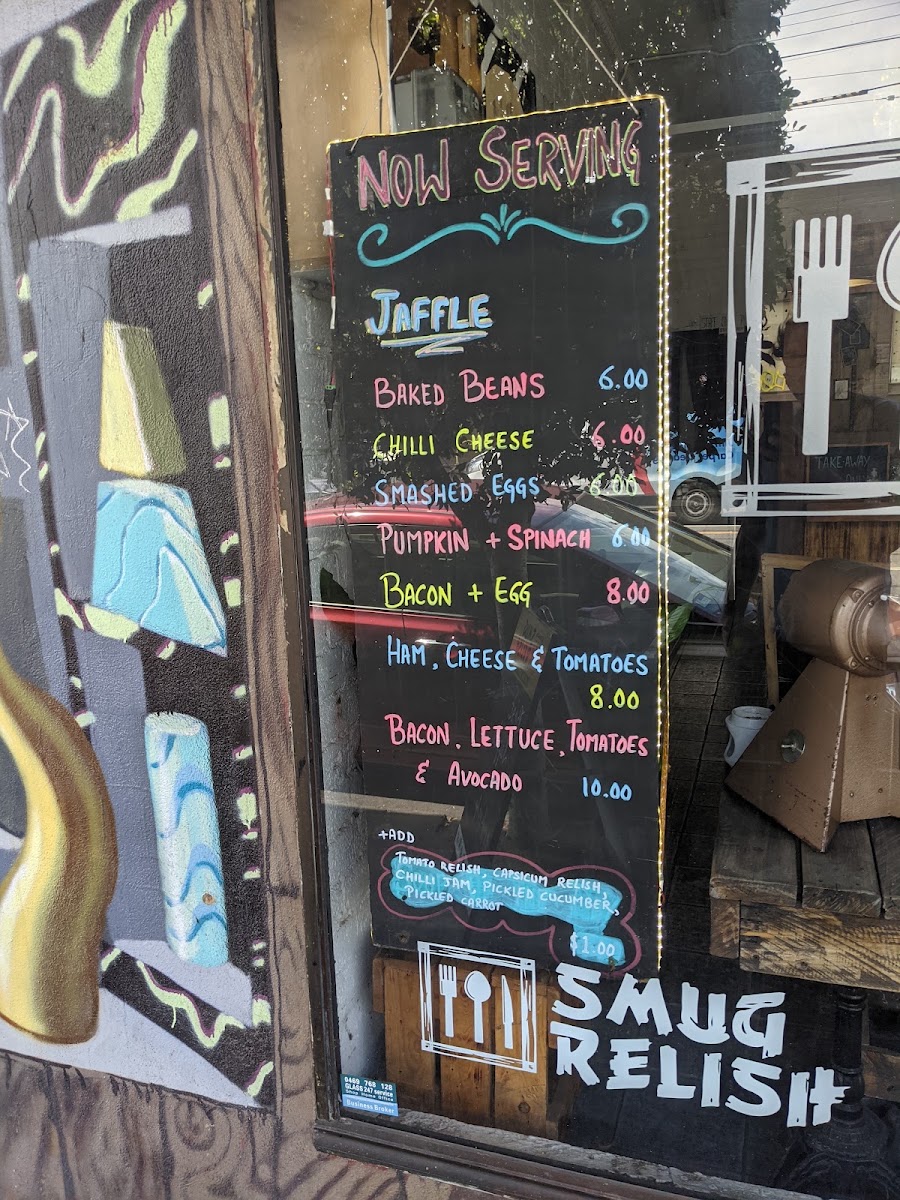 NOW SERVING
JAFFLE
BAKED BEANS 6.00
CHILLI CHEESE 6.00
SMASHED EGGS 6.00
PUMPKIN + SPINACH 6.00
BACON + EGG 8.00
HAM, CHEESE & TOMATOES
8.00
BACON, LETTUCE, TOMATOES
& AVOCADO 10.00
+ADD
TOMATO RELISH, CAPSICUM RELISH,
CHILLI JAM, PICKLED CUCUMBER,
PICKLED CARROT
$1.00
SMUG
RELISH
TAKE-AWAY
0469 768 128
GLASS 247 service
Shop Home Office
Business Broker